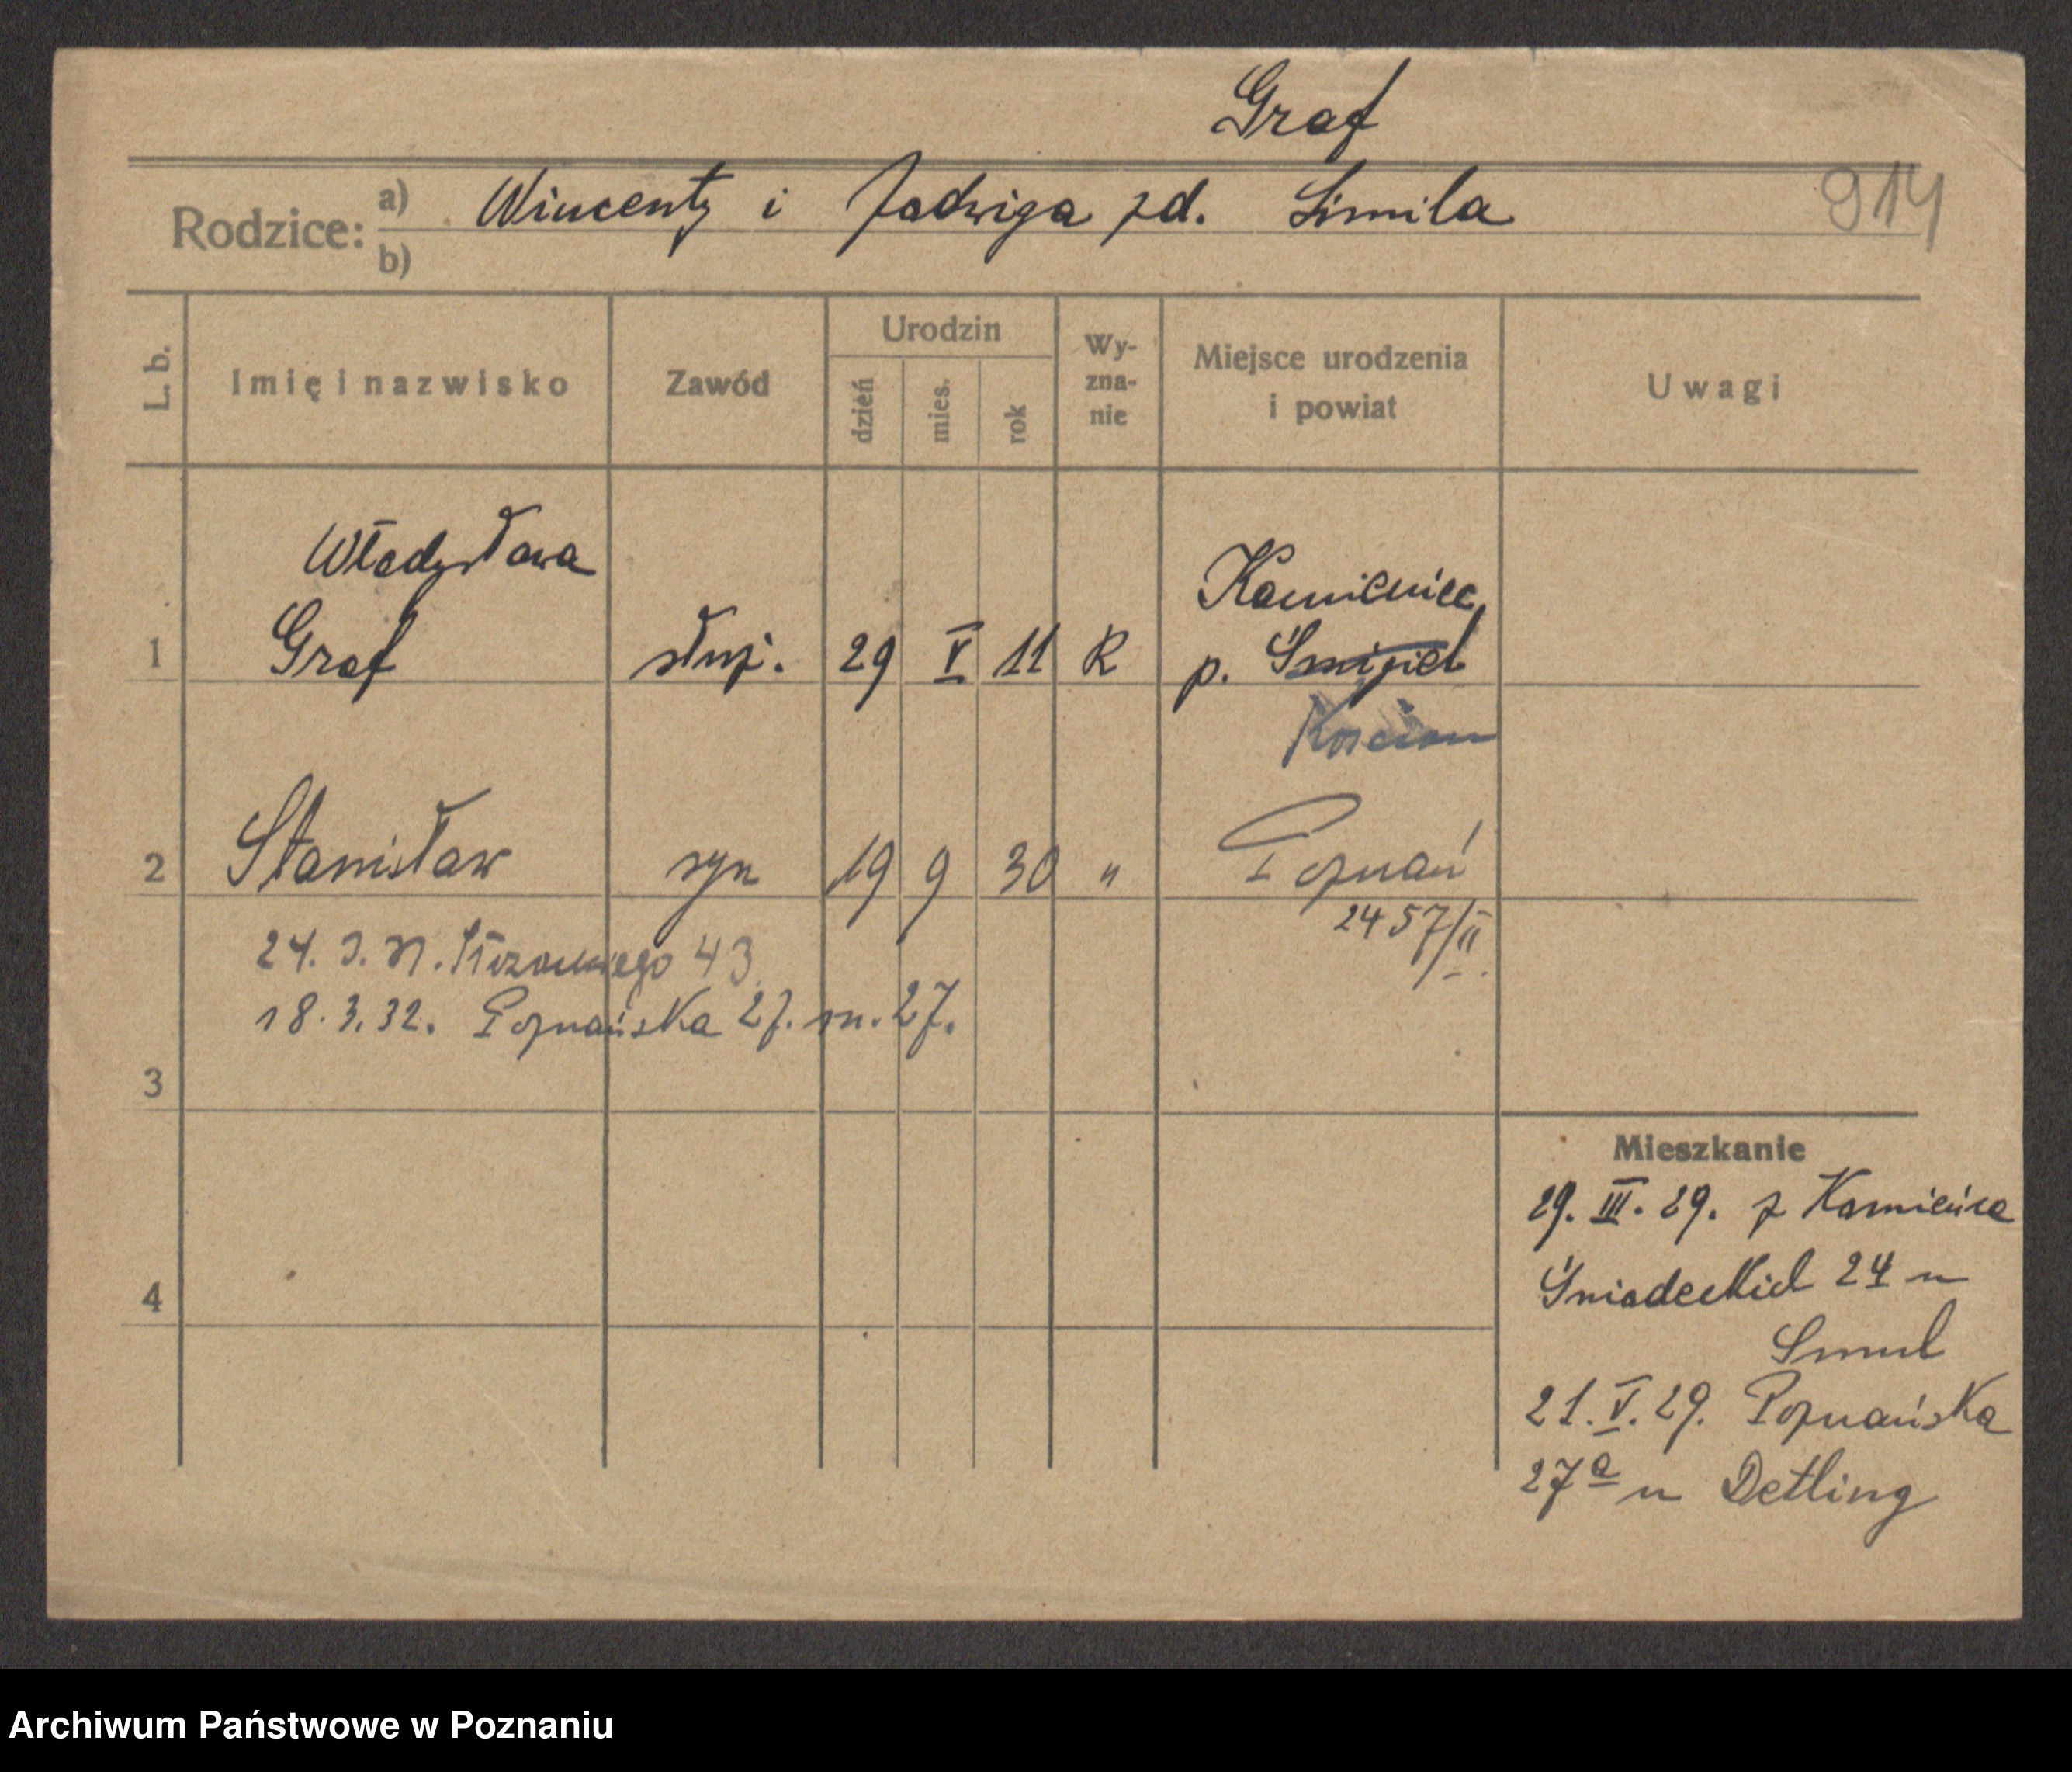 Graf
Rodzice: a) Wincenty i Jadwiga zd. Simila
b)
914
L. b. Imię i nazwisko Zawód Urodzin dzień mies. rok Wy-zna-nie Miejsce urodzenia i powiat Uwagi
Władysława
Kamieniec
1 Graf służ. 29 V 11 R p. Śmigiel
Kościan
2 Stanisław syn 19 9 30 " Poznań
2457/II.
43
18.3.32. Poznańska 27. m. 27.
3
Mieszkanie
29. III. 29. z Kamieńca
4
Śniadeckich 24 u
Smul
21. V. 29. Poznańska
27a u Detling
Archiwum Państwowe w Poznaniu